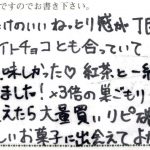 ですのでお書き下さい。
けのいい ねっとり感が 丁度
イトチョコとも合っていて
味しかった♡ 紅茶と一緒
ました! ×3倍の巣ごもり
えたら大量買い リピ確
しいお菓子に出会えてよか